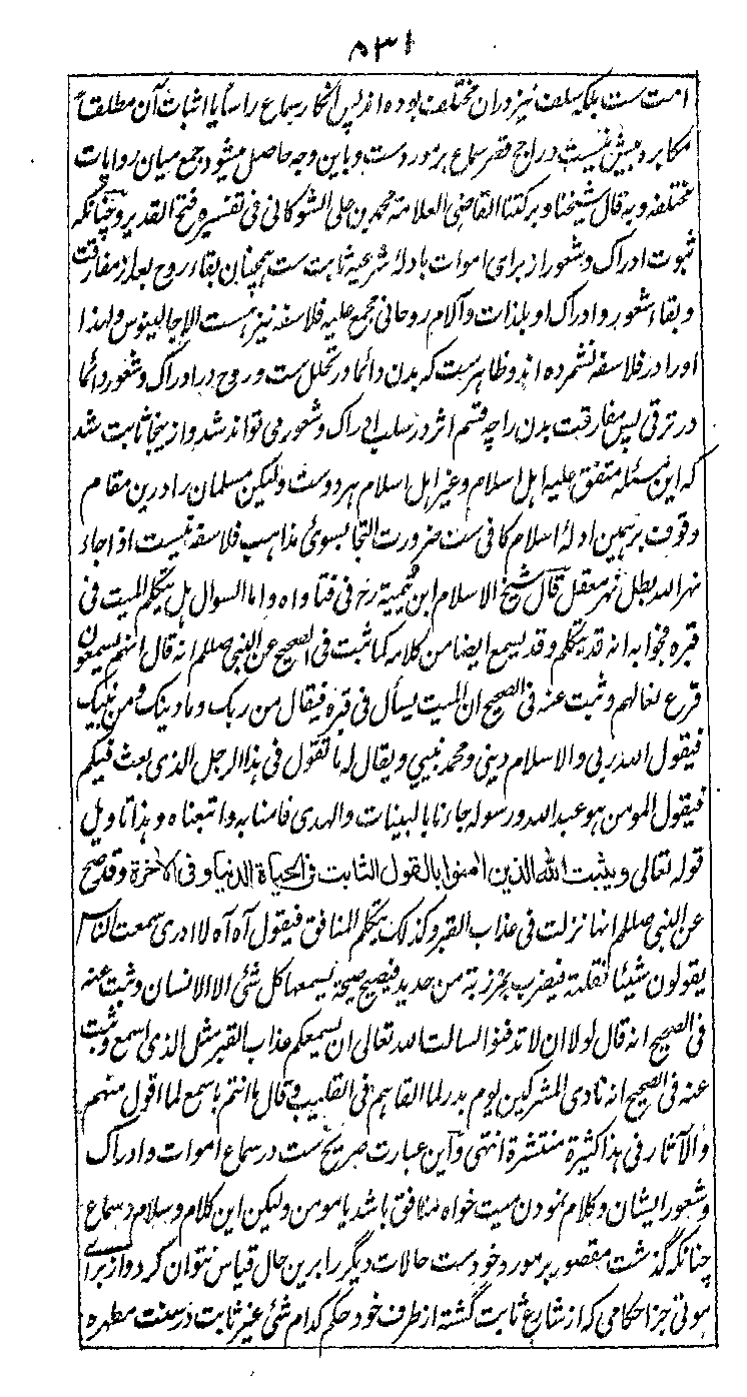 ۵۳۱
امت ست بلکه سلف نیز دران مختلف بوده اند پس انکار سماع راسا یا اثبات آن مطلقا
مکابره بیش نیست و راجح قصر سماع بر مورد ست و باین وجه حاصل میشود جمع میان روایات
مختلفه و به قال شیخنا و برکتنا القاضی العلامة محمد بن علی الشوکانی فی تفسیره فتح القدیر و چنانکه
ثبوت ادراک و شعور از برای اموات بادلهٔ شرعیه ثابت ست همچنان بقاء روح بعد از مفارقت
و بقاء شعور و ادراک او بلذات و آلام روحانی مجمع علیه فلاسفه نیز هست الا جالینوس ولهذا
او را در فلاسفه نشمرده اند و ظاهر ست که بدن دائما در تحلل ست و روح در ادراک و شعور دائما
در ترقی پس مفارقت بدن را چه قسم اثر در سلب ادراک و شعور می تواند شد و از ینجا ثابت شد
که این مسئله متفق علیه اهل اسلام و غیر اهل اسلام هر دوست ولیکن مسلمان را درین مقام
وقوف بر همین ادلهٔ اسلام کافی ست ضرورت التجا بسوی مذاهب فلاسفه نیست اذا جاء
نهر الله بطل نهر معقل قال شیخ الاسلام ابن تیمیة رح فی فتاواه و اما السوال هل یتکلم المیت فی
قبره فجوابه انه قد یتکلم و قد یسمع ایضا من کلامه کما ثبت فی الصحیح عن النبی صللم انه قال انهم یسمعون
قرع نعالهم و ثبت عنه فی الصحیح ان المیت یسأل فی قبره فیقال من ربک و ما دینک و من نبیک
فیقول الله ربی والاسلام دینی و محمد نبیی و یقال له ما تقول فی هذا الرجل الذی بعث فیکم
فیقول المومن هو عبد الله و رسوله جاءنا بالبینات والهدی فامنا به و اتبعناه و هذا تاویل
قوله تعالی و یثبت الله الذین امنوا بالقول الثابت فی الحیاة الدنیا و فی الاخرة وقد صح
عن النبی صللم انها نزلت فی عذاب القبر و کذلک یتکلم المنافق فیقول آه آه لا ادری سمعت الناس
یقولون شیئا فقلته فیضرب بمرزبة من حدید فیصیح صیحة یسمعها کل شئی الا الانسان و ثبت عنه
فی الصحیح انه قال لولا ان لا تدفنوا لسالت الله تعالی ان یسمعکم عذاب القبر مثل الذی اسمع و ثبت
عنه فی الصحیح انه نادی المشرکین یوم بدر لما القاهم فی القلیب و قال ما انتم باسمع لما اقول منهم
والآثار فی هذا کثیرة منتشرة انتهی و این عبارت صریح ست در سماع اموات و ادراک
و شعور ایشان و کلام نمودن میت خواه منافق باشد یا مومن ولیکن این کلام و سلام و سماع
چنانکه گذشت مقصور بر مورد خودست حالات دیگر را برین حال قیاس نتوان کرد و از برای
موتی جز احکامی که از شارع ثابت گشته از طرف خود حکم کدام شئی غیر ثابت در سنت مطهره